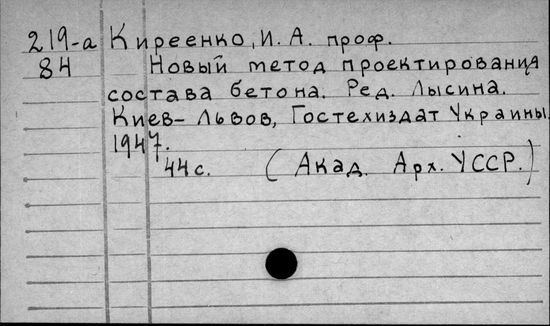 219-а Киреенко, И. А. проф.
84 Новый метод проектирования
состава бетона. Ред. Лысина.
Киев-Львов, Гостехиздат Украины.
1947.
44 с. (Акад. Арх. УССР.)